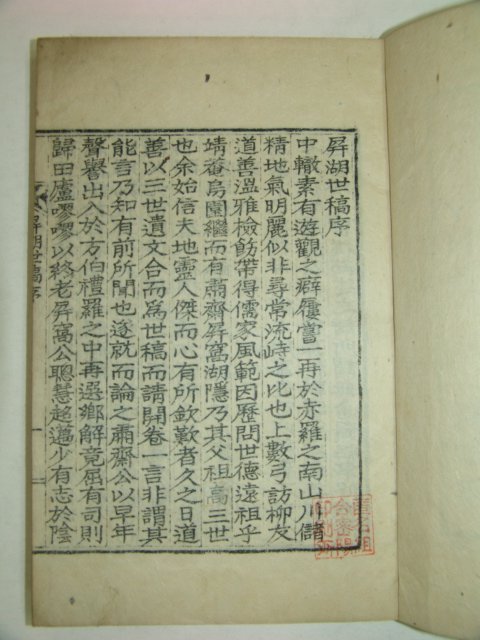 屛湖世稿序
中轍素有遊觀之癖屢嘗一再於赤羅之南山川儲
精地氣明麗似非尋常流峙之比也上數弓訪柳友
道善溫雅檢飭帶得儒家風範因歷問世德遠祖乎
靖菴烏園繼而有肅齋屛窩湖隱乃其父祖高三世
也余始信天地靈人傑而心有所欽歎者久之日道
善以三世遺文合而爲世稿而請開卷一言非謂其
能言乃知有前所聞也遂就而論之肅齋公以早年
聲譽出入於方伯禮羅之中再選鄕解竟屈有司則
歸田廬嘐嘐以終老屛窩公聰慧超邁少有志於陰
屛湖世稿序